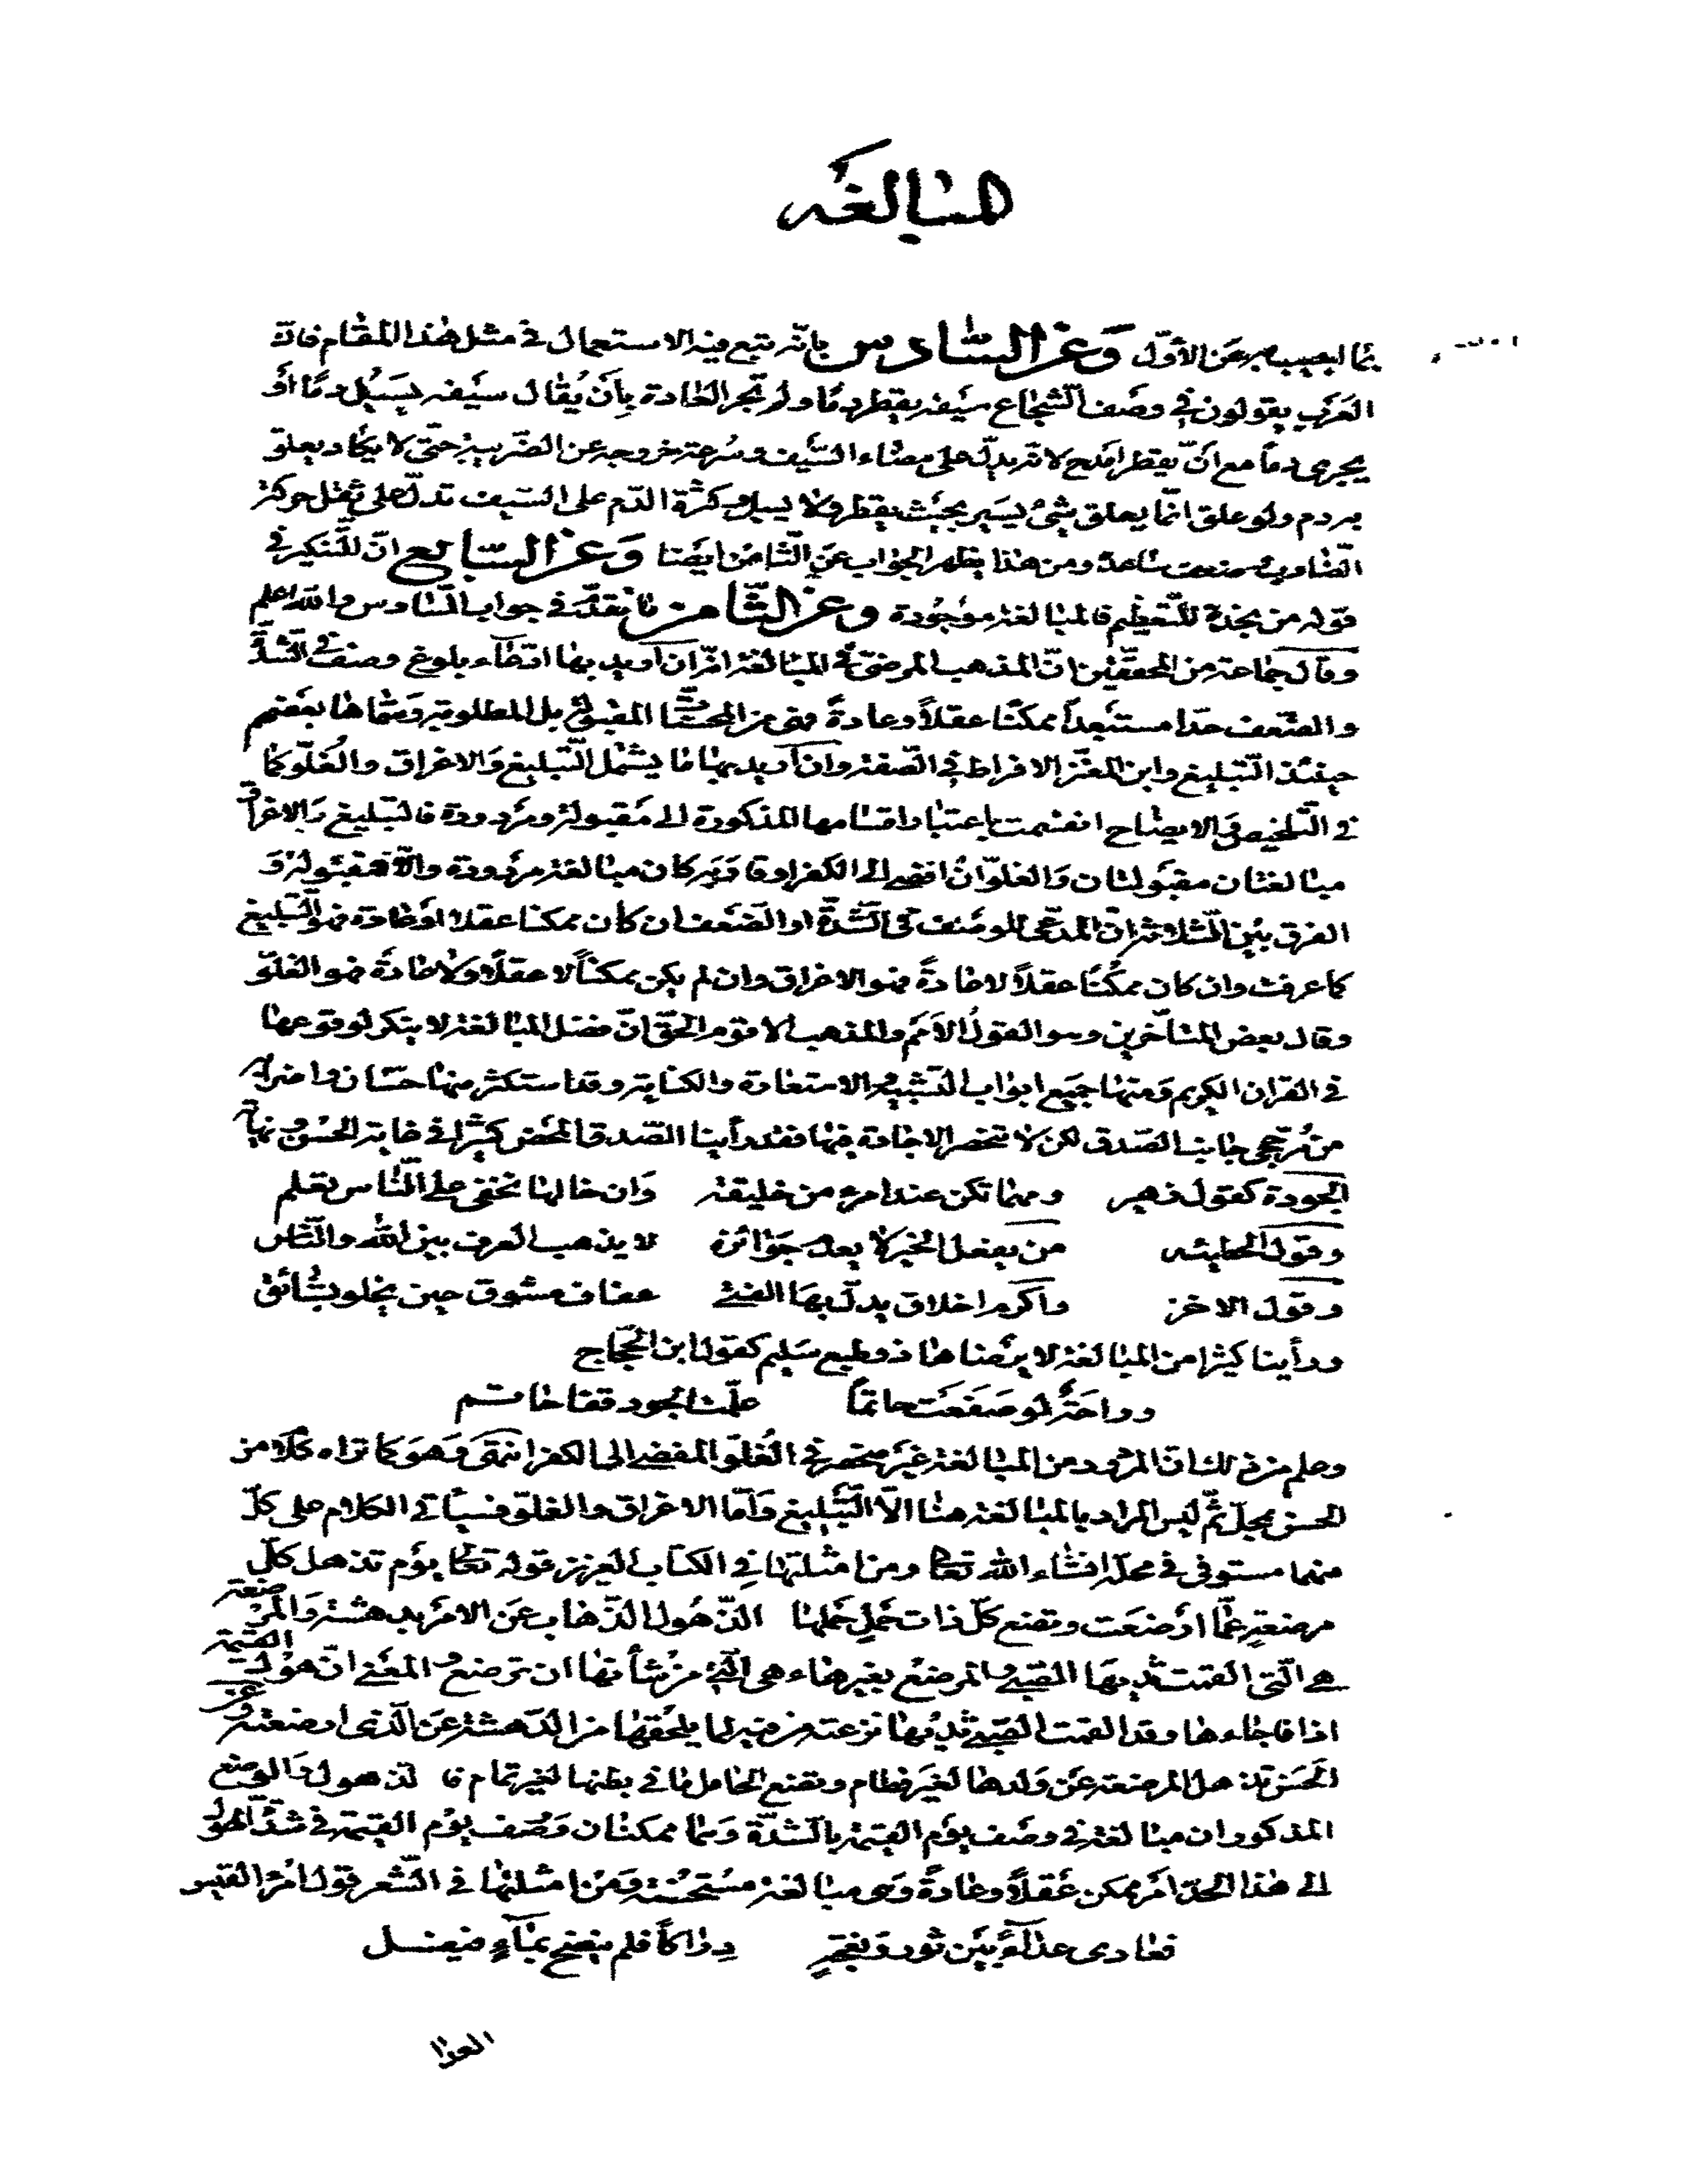 المبالغة
بما اجيب به عن الأوّل وعن السّادس بانّه تتبع فيه الاستعمال في مثل هذا المقام فانّ
العرب يقولون في وصف الشّجاع سيفه يقطر دمًا ولم تجر العادة بأن يُقال سيفه يسيل دمًا أو
يجري دمًا مع انّ يقطر امدح لانّه يدلّ على مضاء السّيف وسرعة خروجه عن الضّريبة حتّى لا يكاد يعلق
به دم ولو علق انّما يعلق شيء يسير بحيث يقطر ولا يسيل وكثرة الدّم على السّيف تدلّ على ثقل حركة
الضّارب وضعف ساعده ومن هذا يظهر الجواب عن الثّامن ايضا وعن السّابع انّ للتّنكير في
قوله من نجدة للتّعظيم فالمبالغة موجودة وعن الثّامن ما تقدّم في جواب السّادس والله اعلم
وقال جماعة من المحقّقين انّ المذهب المرضيّ في المبالغة انّه ان اريد بها ادّعاء بلوغ وصف في الشّدّة
والضّعف حدّا مستبعداً ممكنًا عقلاً وعادةً فهي من المحسّنات المقبولة بل المطلوبة وسمّاها بعضهم
حينئذ التّبليغ وابن المعتز الافراط في الصّفة وان اريد بها ما يشمل التّبليغ والاغراق والغُلّو كما
في التّلخيص والايضاح انقسمت باعتبار اقسامها المذكورة الى مقبولة ومردودة فالتبليغ والاغراق
مبالغتان مقبولتان والغلوّ ان افضى الى الكفر او قاربه كان مبالغة مردودة والّا فمقبولة و
الفرق بين الثّلاثة انّ المدّعى للوصف في الشّدّة او الضّعف ان كان ممكنا عقلا وعادة فهو التّبليغ
كما عرفت وان كان ممكنًا عقلاً لا عادةً فهو الاغراق وان لم يكن ممكناً لا عقلًا ولا عادةً فهو الغلوّ
وقال بعض المتأخّرين وهو القول الأمَمّ والمذهب الاقوم الحقّ انّ فضل المبالغة لا ينكر لوقوعها
في القران الكريم ومنها جميع ابواب التشبيه والاستعارة والكناية وقد استكثر منها حسّان واضرابه
من مُرجّحي جانب الصّدق لكن لا تنحصر الاجادة فيها فقد رأينا الصّدق المحض كثيرًا في غاية الحسن ونهاية
الجودة كقول زهير ومهما تكن عند امرء من خليقة وان خالها تخفى على النّاس تعلم
وقول الحطيئه من يفعل الخير لا يعدم جوائزه لا يذهب العرف بين الله والنّاس
وقول الاخر واكرم اخلاق يدلّ بها الفتى عفاف مشوق حين يخلو بشائق
ورأينا كثيرا من المبالغة لا يرضاها ذو طبع سليم كقول ابن الحجّاج
وراحةٌ لو صفعت حاتمًا علّمت الجود قفا حاتم
وعلم من ذلك انّ المردود من المبالغة غير منحصر في الغُلّو المفضي الى الكفر انتهى وهو كما تراه كلام من
الحسن بمحلّ ثمّ ليس المراد بالمبالغة هنا الّا التّبليغ وامّا الاغراق والغلوّ فسيأتي الكلام على كلّ
منهما مستوفى في محلّه انشاء الله تعالى ومن امثلتها في الكتاب العزيز قوله تعالى يوم تذهل كلّ
مرضعةٍ عمّا ارضعت وتضع كلّ ذات حملٍ حملها الذّهول الذّهاب عن الامر بدهشة والمرضعة
هي الّتي القمت ثديها الصّبيّ والمرضع بغير هاء هي الّتي من شأنها ان ترضع والمعنى انّ هول القيمة
اذا فاجاءها وقد القمت الصّبيّ ثديها نزعته من فيه لما يلحقها من الدّهشة عن الّذي ارضعته وعن
الحسن تذهل المرضعة عن ولدها لغير فطام وتضع الحامل ما في بطنها لغير تمام فالذهول والوضع
المذكوران مبالغة في وصف يوم القيمة بالشّدّة وهما ممكنان وصف يوم القيمة في شدّة الهول
الى هذا الحدّ امر ممكن عقلًا وعادةً وهي مبالغة مستحسنة ومن امثلتها في الشّعر قول امرؤ القيس
فعادى عداءً بين ثور ونعجةٍ دِراكًا فلم ينضح بماءٍ فيغسل
العدا